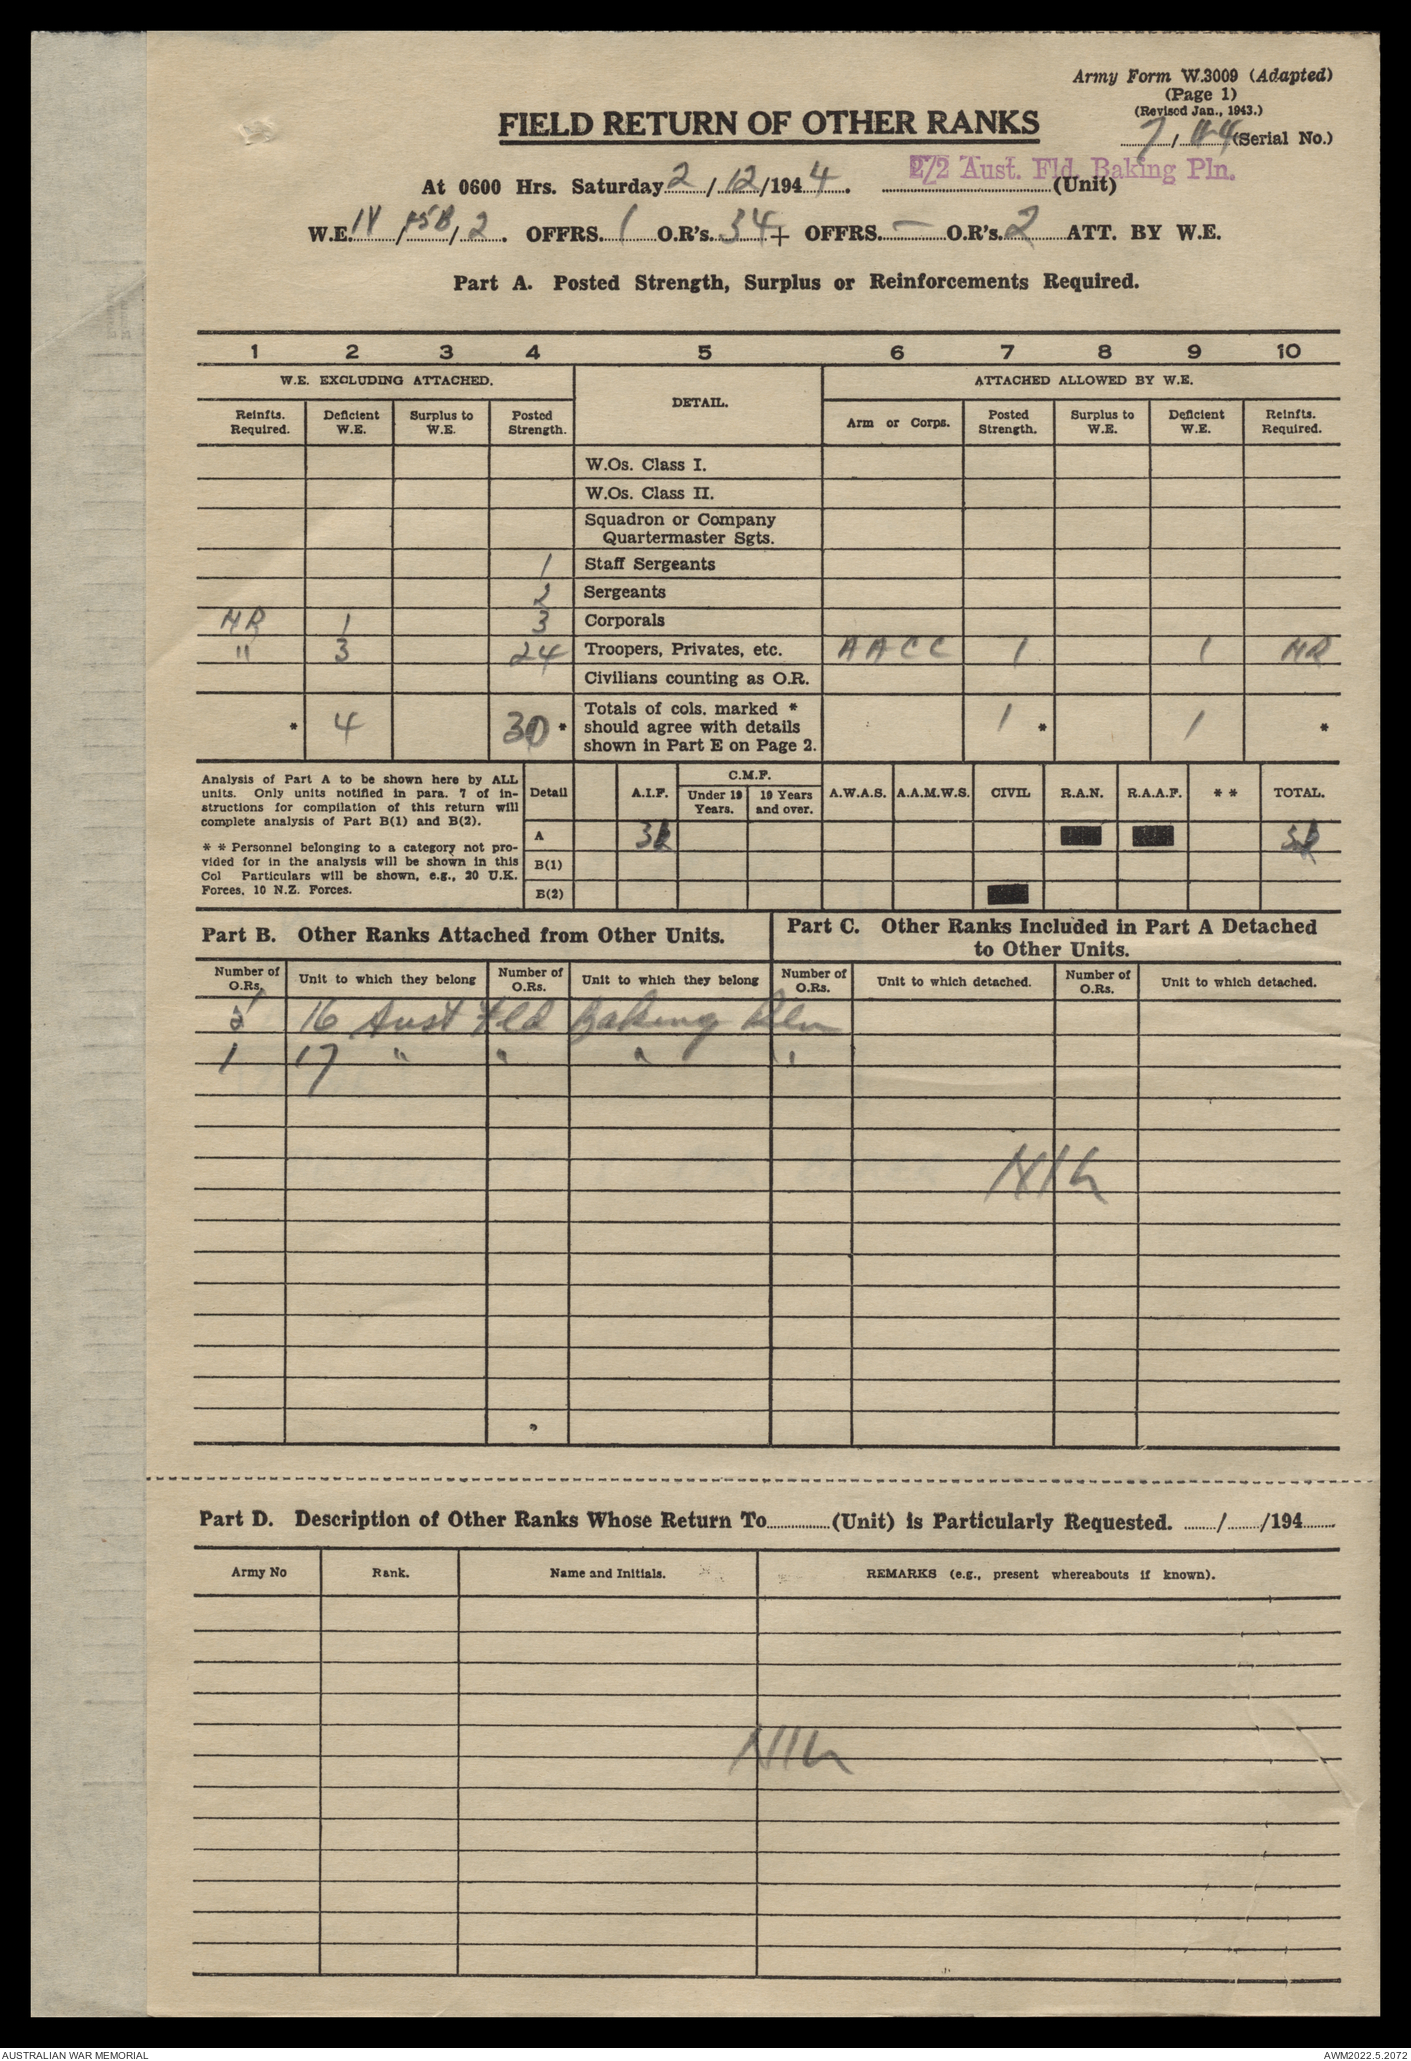 Army Form W.3009 (Adapted)
(Page 1)
(Revised Jan., 1943.)
FIELD RETURN OF OTHER RANKS
7/ (Serial No.)
At 0600 Hrs. Saturday 2/12/1944. 2/2 Aust. Fld. Baking Pln. (Unit)
W.E. /2. OFFRS. 1 O.R's. 34 + OFFRS. — O.R's. 2 ATT. BY W.E.
Part A. Posted Strength, Surplus or Reinforcements Required.
1 2 3 4 5 6 7 8 9 10
W.E. EXCLUDING ATTACHED. DETAIL. ATTACHED ALLOWED BY W.E.
Reinfts. Required. Deficient W.E. Surplus to W.E. Posted Strength. Arm or Corps. Posted Strength. Surplus to W.E. Deficient W.E. Reinfts. Required.
W.Os. Class I.
W.Os. Class II.
Squadron or Company
Quartermaster Sgts.
1 Staff Sergeants
2 Sergeants
NR 1 3 Corporals
" 3 24 Troopers, Privates, etc. AACC 1 1 NR
Civilians counting as O.R.
* 4 30 * Totals of cols. marked * should agree with details shown in Part E on Page 2. 1 * 1 *
Analysis of Part A to be shown here by ALL
units. Only units notified in para. 7 of in-
structions for compilation of this return will
complete analysis of Part B(1) and B(2).
* * Personnel belonging to a category not pro-
vided for in the analysis will be shown in this
Col Particulars will be shown, e.g., 20 U.K.
Forces, 10 N.Z. Forces.
Detail A.I.F. C.M.F. Under 19 Years. 19 Years and over. A.W.A.S. A.A.M.W.S. CIVIL R.A.N. R.A.A.F. * * TOTAL.
A
B(1)
B(2)
Part B. Other Ranks Attached from Other Units.
Part C. Other Ranks Included in Part A Detached
to Other Units.
Number of O.Rs. Unit to which they belong Number of O.Rs. Unit to which they belong Number of O.Rs. Unit to which detached. Number of O.Rs. Unit to which detached.
1 16 Aust Fld Baking Pln
1 17 " " " "
NIL
Part D. Description of Other Ranks Whose Return To (Unit) is Particularly Requested. / /194
Army No Rank. Name and Initials. REMARKS (e.g., present whereabouts if known).
NIL
AUSTRALIAN WAR MEMORIAL
AWM2022.5.2072